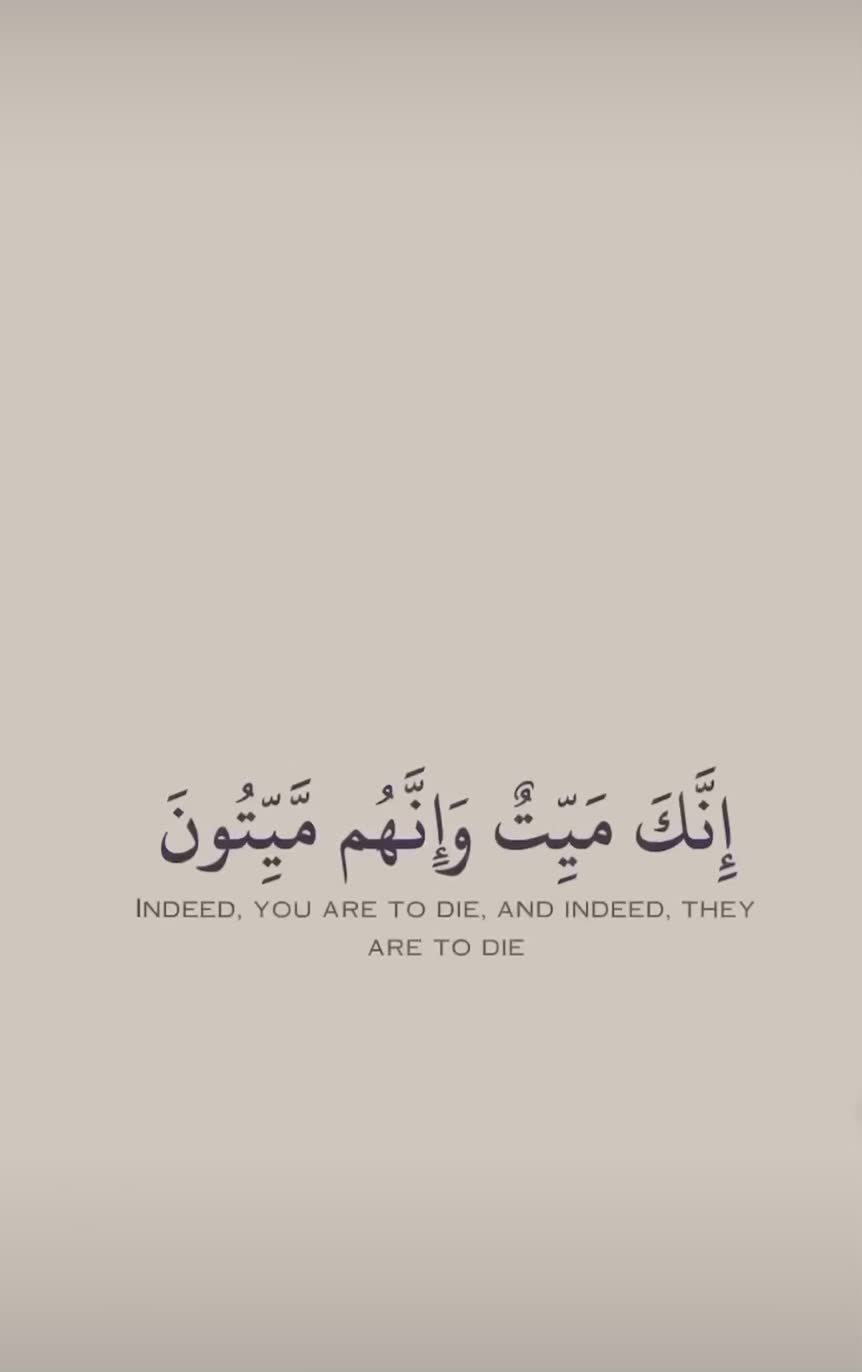 إِنَّكَ مَيِّتٌ وَإِنَّهُم مَّيِّتُونَ
INDEED, YOU ARE TO DIE, AND INDEED, THEY
ARE TO DIE